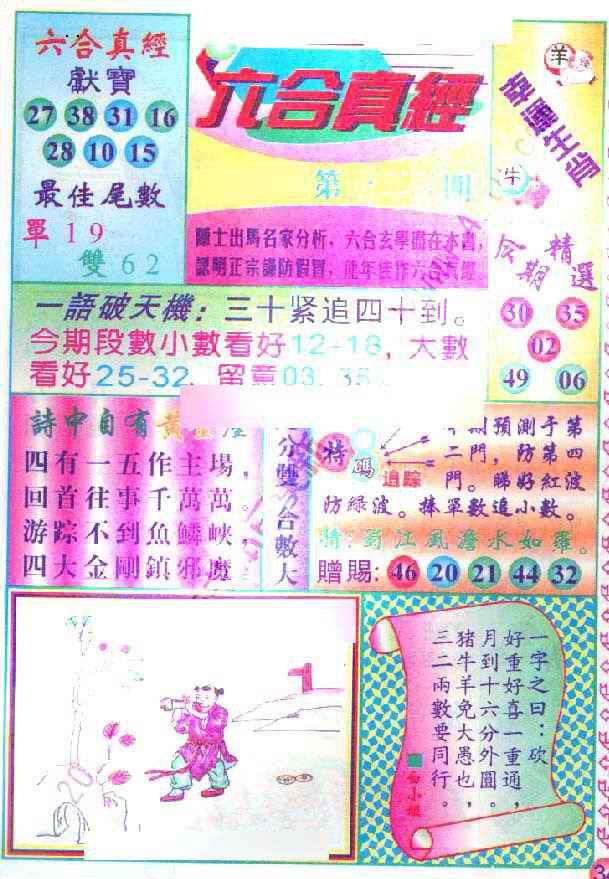 六合真經
獻寶
27 38 31 16
28 10 15
最佳尾數
單19
雙62
六合真經
第 期
隱士出馬名家分析，六合玄學盡在本書，
認明正宗謹防假冒，龍年佳作六合真經
羊
幸運生肖
牛
今期精選
30 35
02
49 06
一語破天機：三十紧追四十到。
今期段數小數看好12-18，大數
看好25-32，留意03.35
詩中自有黃
四有一五作主場，
回首往事千萬萬。
游踪不到魚鱗峽，
四大金剛鎮邪魔。
分雙合數大
特碼
追踪
期預測于第
二門，防第四
門。睇好紅波
防綠波。捧單數追小數。
特：蜀江風澹水如羅。
贈賜：46 20 21 44 32
一字之曰：砍
好重好喜一重通，
月到十六分外圓。
猪牛羊兔大愚也，
三二兩數要同行。
白小姐
3